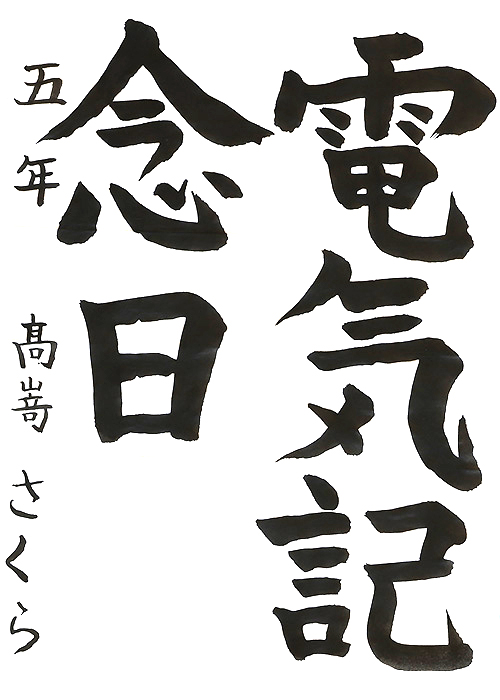 電気記
念日
五年 髙嵜 さくら